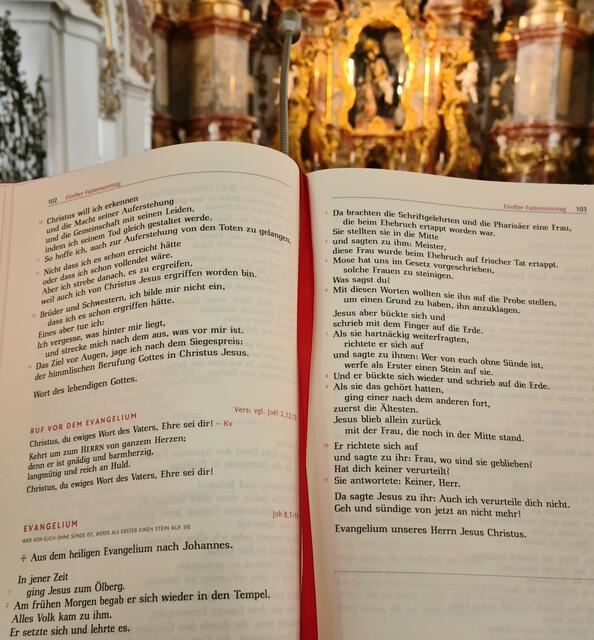 102 Fünfter Fastensonntag
10 Christus will ich erkennen
und die Macht seiner Auferstehung
und die Gemeinschaft mit seinen Leiden,
indem ich seinem Tod gleich gestaltet werde.
11 So hoffe ich, auch zur Auferstehung von den Toten zu gelangen.
12 Nicht dass ich es schon erreicht hätte
oder dass ich schon vollendet wäre.
Aber ich strebe danach, es zu ergreifen,
weil auch ich von Christus Jesus ergriffen worden bin.
13 Brüder und Schwestern, ich bilde mir nicht ein,
dass ich es schon ergriffen hätte.
Eines aber tue ich:
Ich vergesse, was hinter mir liegt,
und strecke mich nach dem aus, was vor mir ist.
14 Das Ziel vor Augen, jage ich nach dem Siegespreis:
der himmlischen Berufung Gottes in Christus Jesus.
Wort des lebendigen Gottes.
RUF VOR DEM EVANGELIUM Vers: vgl. Joël 2,12.13
Christus, du ewiges Wort des Vaters, Ehre sei dir! – Kv
Kehrt um zum HERRN von ganzem Herzen;
denn er ist gnädig und barmherzig,
langmütig und reich an Huld.
Christus, du ewiges Wort des Vaters, Ehre sei dir!
EVANGELIUM Joh 8,1-11
WER VON EUCH OHNE SÜNDE IST, WERFE ALS ERSTER EINEN STEIN AUF SIE
+ Aus dem heiligen Evangelium nach Johannes.
In jener Zeit
1 ging Jesus zum Ölberg.
2 Am frühen Morgen begab er sich wieder in den Tempel.
Alles Volk kam zu ihm.
Er setzte sich und lehrte es.
Fünfter Fastensonntag 103
3 Da brachten die Schriftgelehrten und die Pharisäer eine Frau,
die beim Ehebruch ertappt worden war.
Sie stellten sie in die Mitte
4 und sagten zu ihm: Meister,
diese Frau wurde beim Ehebruch auf frischer Tat ertappt.
5 Mose hat uns im Gesetz vorgeschrieben,
solche Frauen zu steinigen.
Was sagst du?
6 Mit diesen Worten wollten sie ihn auf die Probe stellen,
um einen Grund zu haben, ihn anzuklagen.
Jesus aber bückte sich und
schrieb mit dem Finger auf die Erde.
7 Als sie hartnäckig weiterfragten,
richtete er sich auf
und sagte zu ihnen: Wer von euch ohne Sünde ist,
werfe als Erster einen Stein auf sie.
8 Und er bückte sich wieder und schrieb auf die Erde.
9 Als sie das gehört hatten,
ging einer nach dem anderen fort,
zuerst die Ältesten.
Jesus blieb allein zurück
mit der Frau, die noch in der Mitte stand.
10 Er richtete sich auf
und sagte zu ihr: Frau, wo sind sie geblieben?
Hat dich keiner verurteilt?
11 Sie antwortete: Keiner, Herr.
Da sagte Jesus zu ihr: Auch ich verurteile dich nicht.
Geh und sündige von jetzt an nicht mehr!
Evangelium unseres Herrn Jesus Christus.